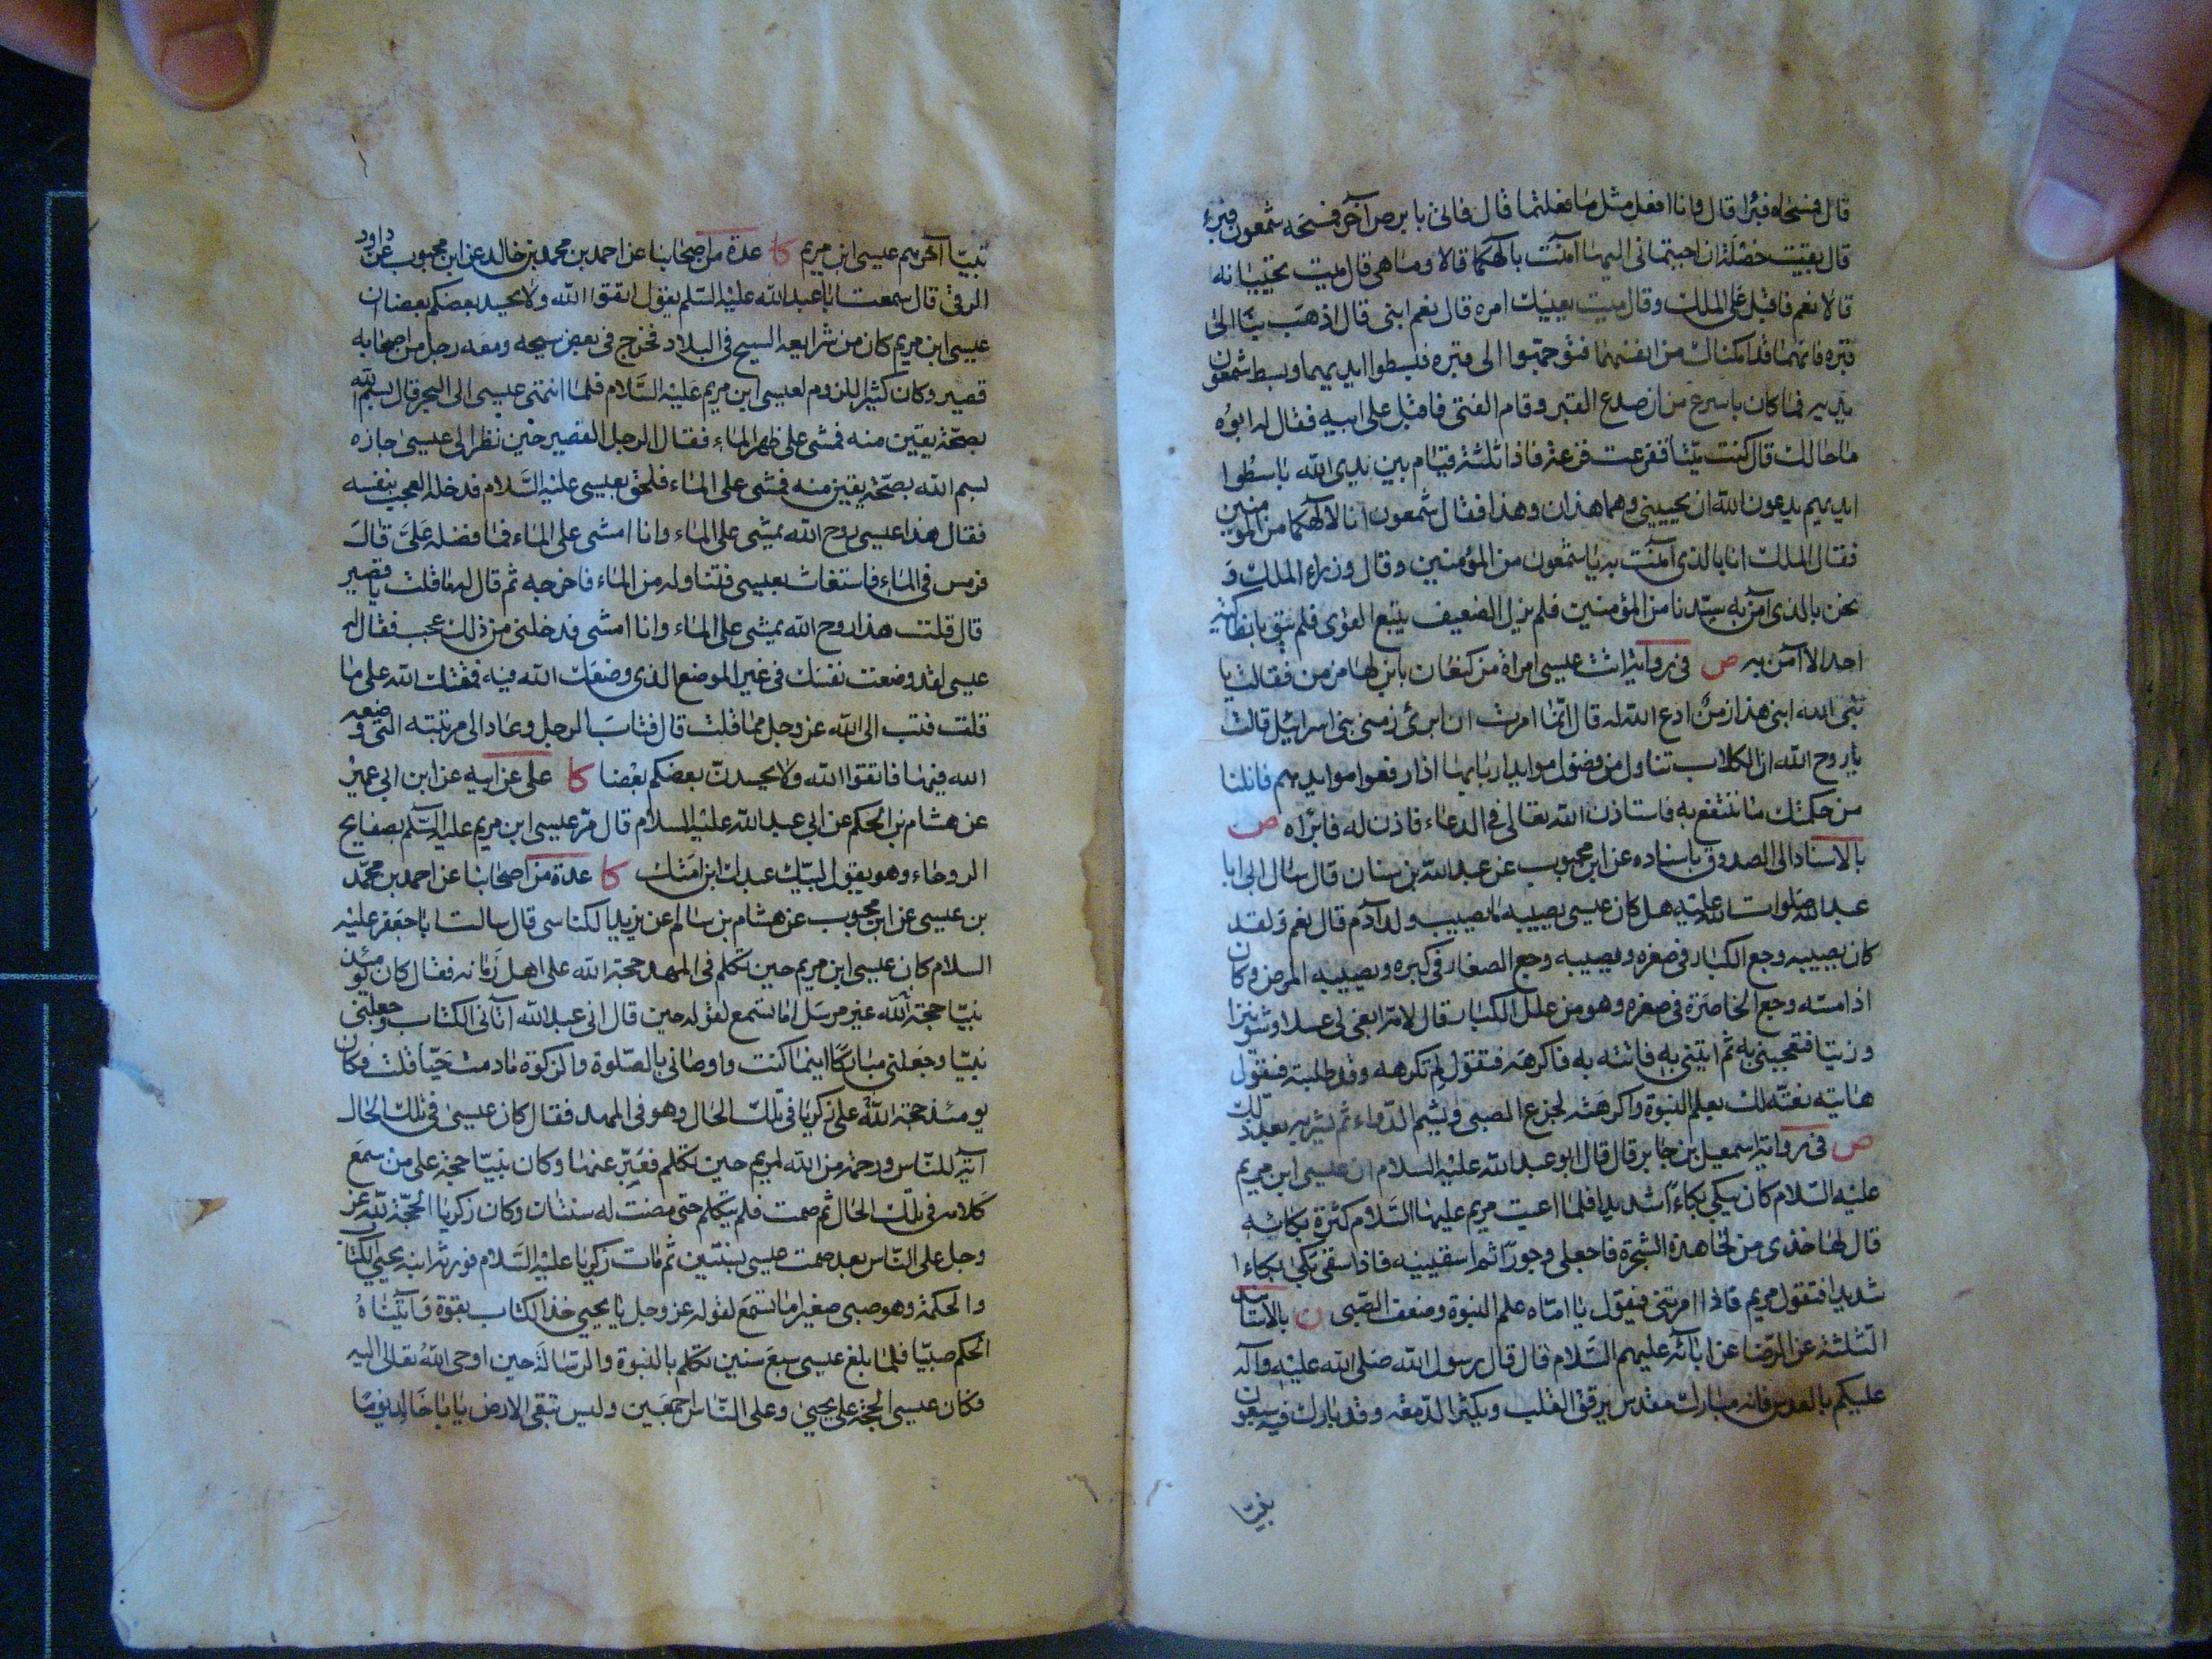 قال فمسحاه فبرأ قال وانا افعل مثل ما فعلتما قال فاتى بابرص آخر فمسحه شمعون فبرء
قال بقيت خصلة ان اجبتمانى اليها آمنت بالهكما قالا وما هى قال ميت تحييانه
قالا نعم فاقبل على الملك وقال ميت يعنيك امره قال نعم ابنى قال اذهب بنا الى
قبره فانهما قد امكناك من انفسهما فتوجهوا الى قبره فبسطوا ايديهما وبسط شمعون
يديه فما كان باسرع من ان صدع القبر وقام الفتى فاقبل على ابيه فقال له ابوه
ما حالك قال كنت ميتا ففزعت فزعة فاذا ثلثة قيام بين يدى الله باسطوا
ايديهم يدعون الله ان يحيينى وهما هذان وهذا فقال شمعون انا لالهكما من المؤمنين
فقال الملك انا بالذى آمنت به يا شمعون من المؤمنين وقال وزراء الملك و
نحن بالذى آمن به سيدنا من المؤمنين فلم يزل الضعيف يتبع القوى فلم يبق بانطاكية
احد الا آمن به ص فى رواية اتت عيسى امراة من كنعان بابن لها مزمن فقالت يا
نبى الله ابنى هذا زمن ادع الله له قال انما امرت ان ابرئ زمنى بنى اسرائيل قالت
يا روح الله ان الكلاب تناول من فضول موايد اربابها اذا رفعوا موايدهم فانلنا
من حكمتك ما ننتفع به فاستاذن الله تعالى فى الدعاء فاذن له فابراه ص
بالاسناد الى الصدوق باسناده عن ابن محبوب عن عبد الله بن سنان قال سال ابى ابا
عبد الله صلوات الله عليه هل كان عيسى يصيبه ما يصيب ولد آدم قال نعم ولقد
كان يصيبه وجع الكبار فى صغره ويصيبه وجع الصغار فى كبره ويصيبه المرض وكان
اذا مسه وجع الخاصرة فى صغره وهو من علل الكبار قال لامه ابغى لى عسلا وشونيزا
وزيتا فتعجنى به ثم ايتينى به فاتته به فاكرهه فتقول لم تكرهه وقد طلبته فيقول
هاتيه نعته لك بعلم النبوة واكرهته لجزع الصبى ويشم الدواء ثم يشربه بعد ذلك
ص فى رواية اسمعيل بن جابر قال قال ابو عبد الله عليه السلام ان عيسى ابن مريم
عليه السلام كان يبكى بكاءً شديدا فلما اعيت مريم عليها السلام كثرة بكائه
قال لها خذى من لحا هذه الشجرة فاجعلى وجورا ثم اسقينيه فاذا سقى بكى بكاءا
شديدا فتقول مريم فاذا امرتنى فيقول يا اماه علم النبوة وضعف الصبى ن بالاسانيد
الثلثة عن الرضا عن آبائه عليهم السلام قال قال رسول الله صلى الله عليه وآله
عليكم بالعدس فانه مبارك مقدس يرقق القلب ويكثر الدمعة وقد بارك فيه سبعون
نبيا
نبيا آخرهم عيسى ابن مريم كا عدة من اصحابنا عن احمد بن محمد بن خالد عن ابن محبوب عن داود
الرقى قال سمعت ابا عبد الله عليه السلم يقول اتقوا الله ولا يحسد بعضكم بعضا ان
عيسى ابن مريم كان من شرايعه السيح فى البلاد فخرج فى بعض سيحه ومعه رجل من اصحابه
قصير وكان كثير اللزوم لعيسى ابن مريم عليه السلام فلما انتهى عيسى الى البحر قال بسم الله
بصحة يقين منه فمشى على ظهر الماء فقال الرجل القصير حين نظر الى عيسى جازه
بسم الله بصحة يقين منه فمشى على الماء فلحق بعيسى عليه السلام فدخله العجب بنفسه
فقال هذا عيسى روح الله يمشى على الماء وانا امشى على الماء فما فضله على قال
فرمس فى الماء فاستغاث بعيسى فتناوله من الماء فاخرجه ثم قال له ما قلت يا قصير
قال قلت هذا روح الله يمشى على الماء وانا امشى فدخلنى من ذلك عجب فقال له
عيسى لقد وضعت نفسك فى غير الموضع الذى وضعك الله فيه فمقتك الله على ما
قلت فتب الى الله عز وجل مما قلت قال فتاب الرجل وعاد الى مرتبته التى وضعه
الله فيها فاتقوا الله ولا يحسدن بعضكم بعضا كا على عن ابيه عن ابن ابى عمير
عن هشام بن الحكم عن ابى عبد الله عليه السلام قال مر عيسى ابن مريم عليه السلم بصفايح
الروحاء وهو يقول لبيك عبدك ابن امتك كا عدة من اصحابنا عن احمد بن محمد
بن عيسى عن ابن محبوب عن هشام بن سالم عن يزيد الكناسى قال سالت ابا جعفر عليه
السلام كان عيسى ابن مريم حين تكلم فى المهد حجة الله على اهل زمانه فقال كان يومئذ
نبيا حجة الله غير مرسل اما تسمع لقوله حين قال انى عبد الله آتانى الكتاب وجعلنى
نبيا وجعلنى مباركا اينما كنت واوصانى بالصلوة والزكوة ما دمت حيا قلت فكان
يومئذ حجة الله على زكريا فى تلك الحال وهو فى المهد فقال كان عيسى فى تلك الحال
آية للناس ورحمة من الله لمريم حين تكلم فعبر عنها وكان نبيا حجة على من سمع
كلامه فى تلك الحال ثم صمت فلم يتكلم حتى مضت له سنتان وكان زكريا الحجة لله عز
وجل على الناس بعد صمت عيسى بسنتين ثم مات زكريا عليه السلام فورثه ابنه يحيى الكتاب
والحكمة وهو صبى صغير اما تسمع لقوله عز وجل يا يحيى خذ الكتاب بقوة وآتيناه
الحكم صبيا فلما بلغ عيسى سبع سنين تكلم بالنبوة والرسالة حين اوحى الله تعالى اليه
فكان عيسى الحجة على يحيى وعلى الناس اجمعين وليس تبقى الارض يا با خالد يوما